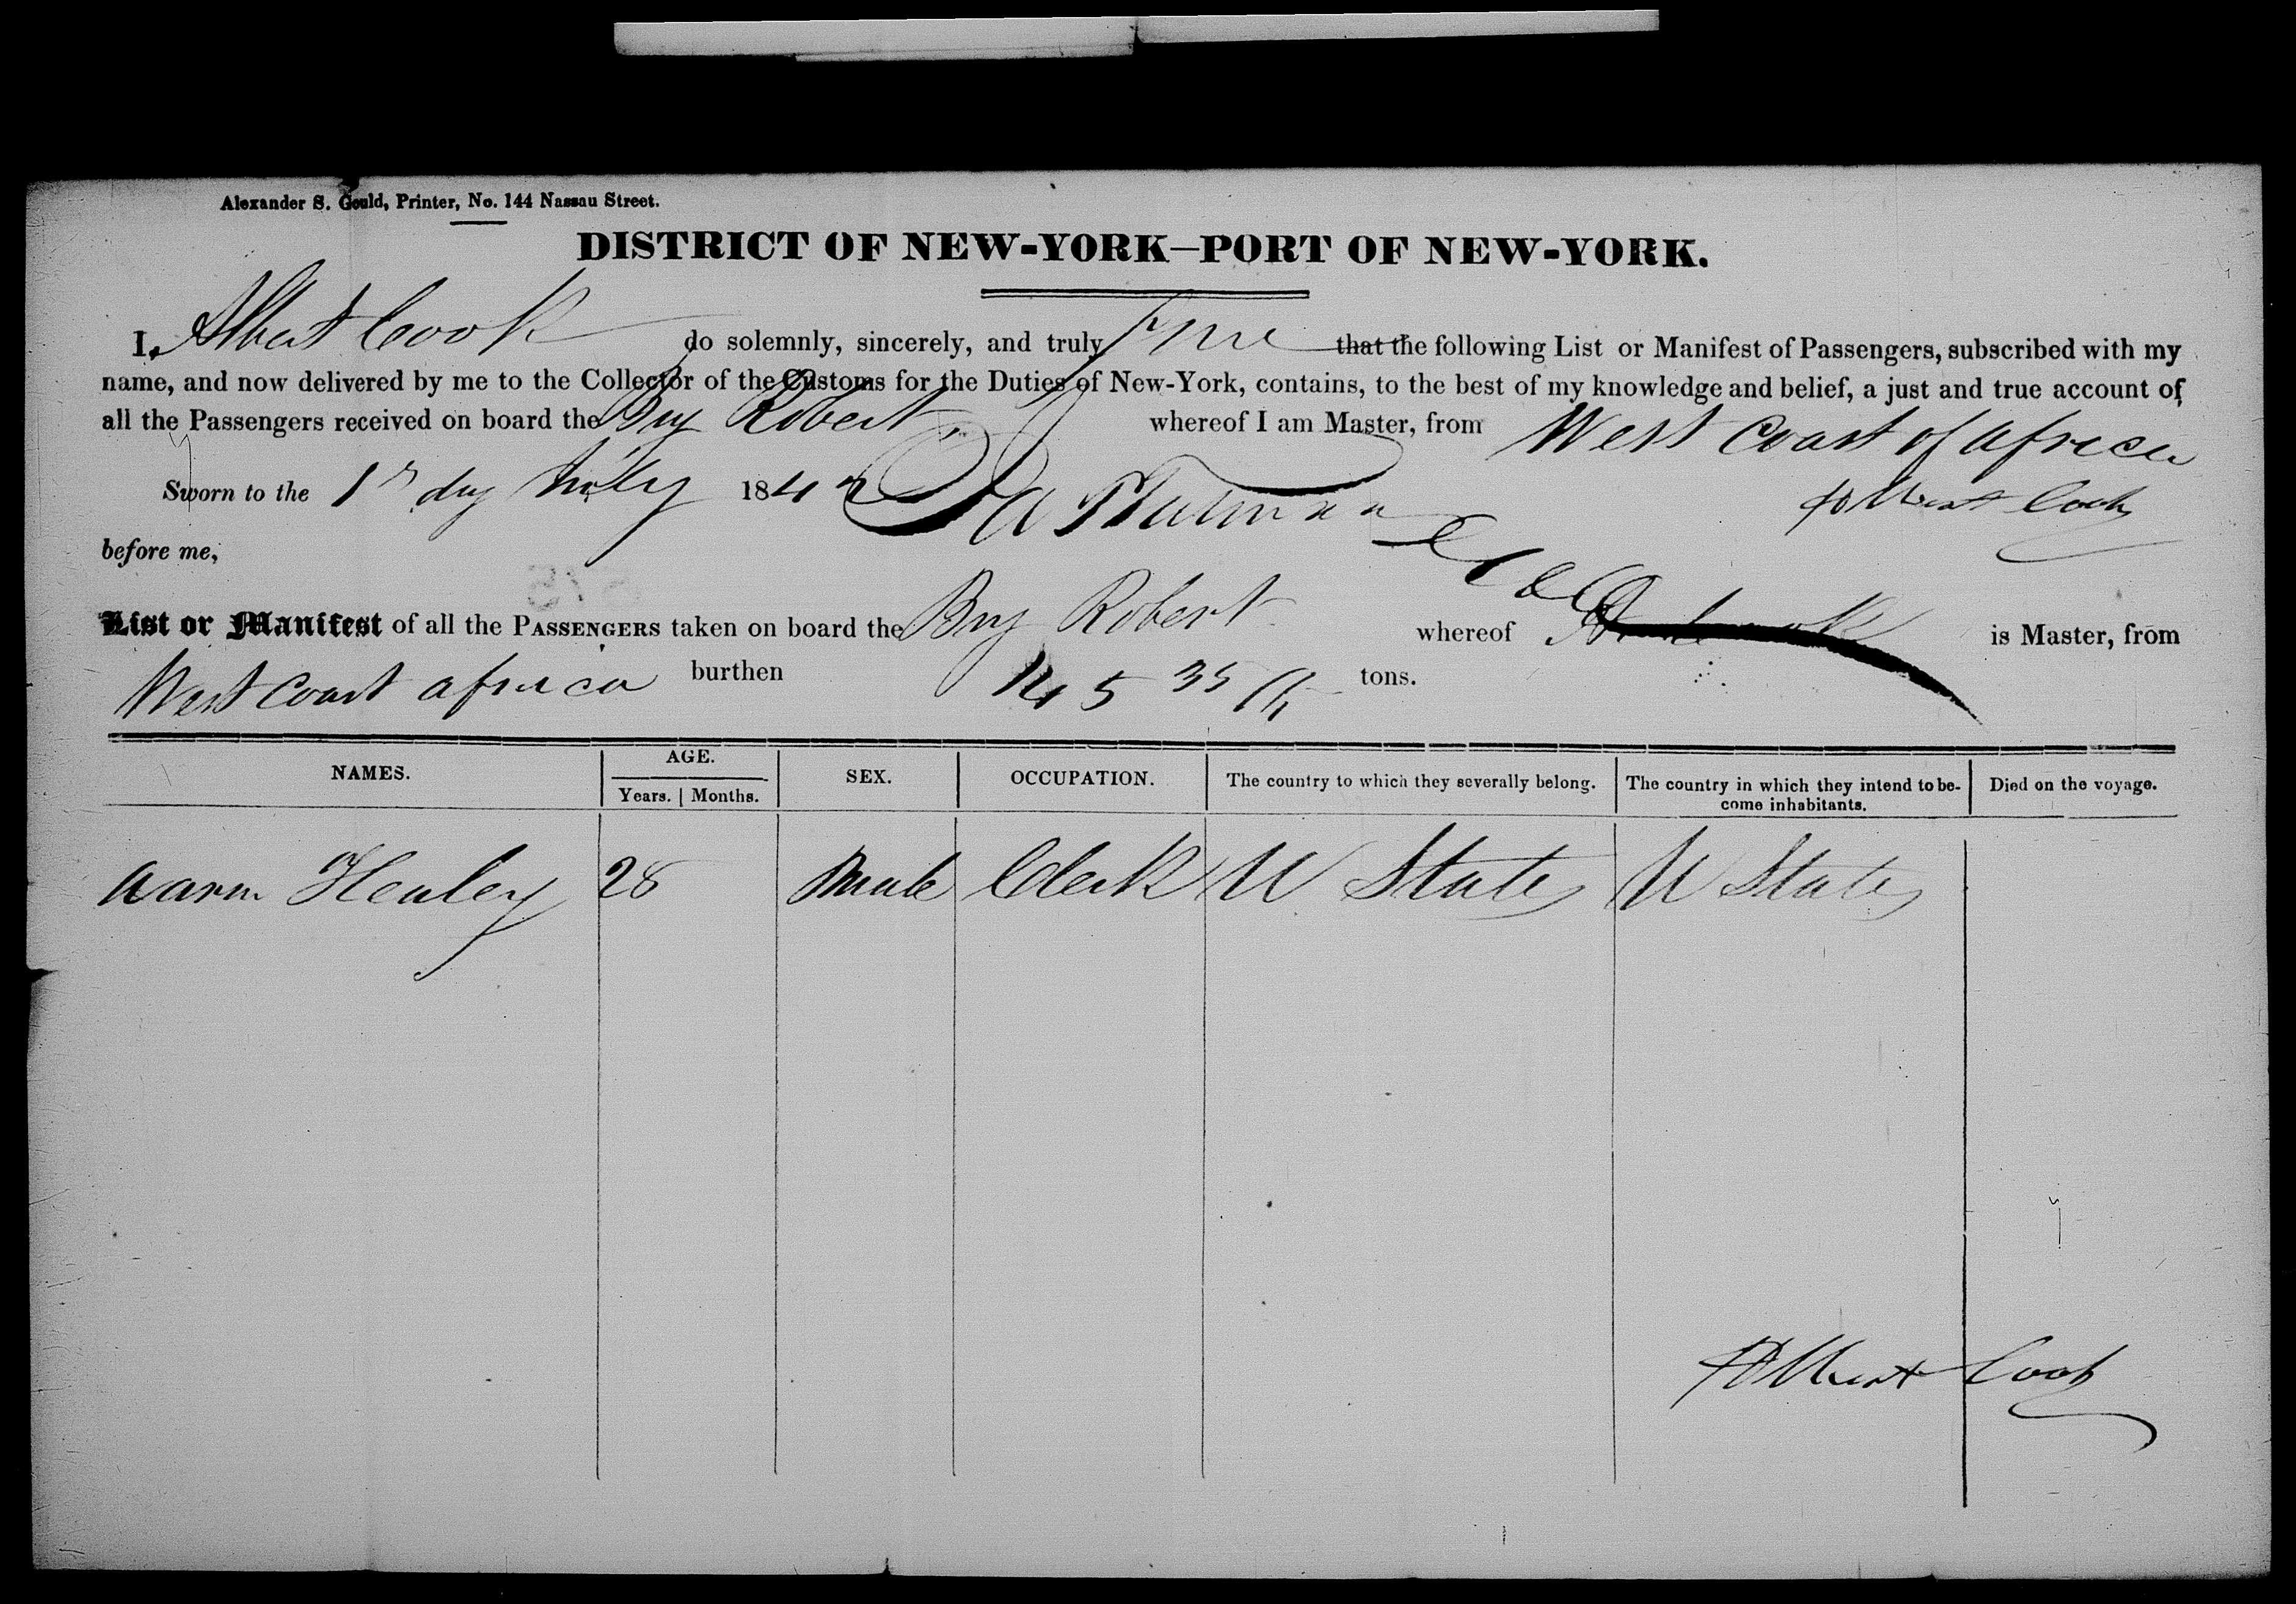 Alexander S. Gould, Printer, No. 144 Nassau Street.
DISTRICT OF NEW-YORK—PORT OF NEW-YORK.
I, Albert Cook do solemnly, sincerely, and truly that the following List or Manifest of Passengers, subscribed with my
name, and now delivered by me to the Collector of the Customs for the Duties of New-York, contains, to the best of my knowledge and belief, a just and true account of
all the Passengers received on board the Brig Robert whereof I am Master, from West Coast of africa
Sworn to the 1st day July 184 Albert Cook
before me,
List or Manifest of all the PASSENGERS taken on board the Brig Robert whereof is Master, from
West Coast africa burthen 145 35 tons.
NAMES. AGE. SEX. OCCUPATION. The country to which they severally belong. The country in which they intend to be- Died on the voyage.
Years. | Months. come inhabitants.
aaron Henley 28 Male Clerk U States U States
Albert Cook